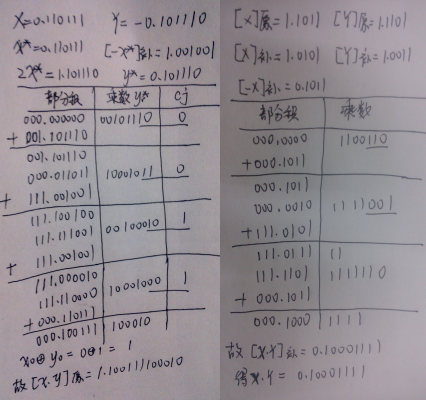 X=0.110111 Y=-0.101110
X*=0.110111 [-X*]补=1.001001
2X*=1.101110 Y*=0.101110
部分积 乘数 Y* Cj
000.000000 00101110 0
+ 001.101110
001.101110
000.011011 10001011 0
+ 111.001001
111.100100
111.111001 00100010 1
+ 111.001001
111.000010
111.110000 10001000 1
+ 000.110111
000.100111 100010
x0⊕y0=0⊕1=1
故[X.Y]原=1.100111100010
[X]原=1.1011 [Y]原=1.1101
[X]补=1.0101 [Y]补=1.0011
[-X]补=0.1011
部分积 乘数
000.0000 1100110
+000.1011
000.1011
000.0010 1111001
+111.0101
111.0111 11
111.1101 1111110
+ 000.1011
000.1000 1111
故[X.Y]补=0.10001111
得X.Y=0.10001111